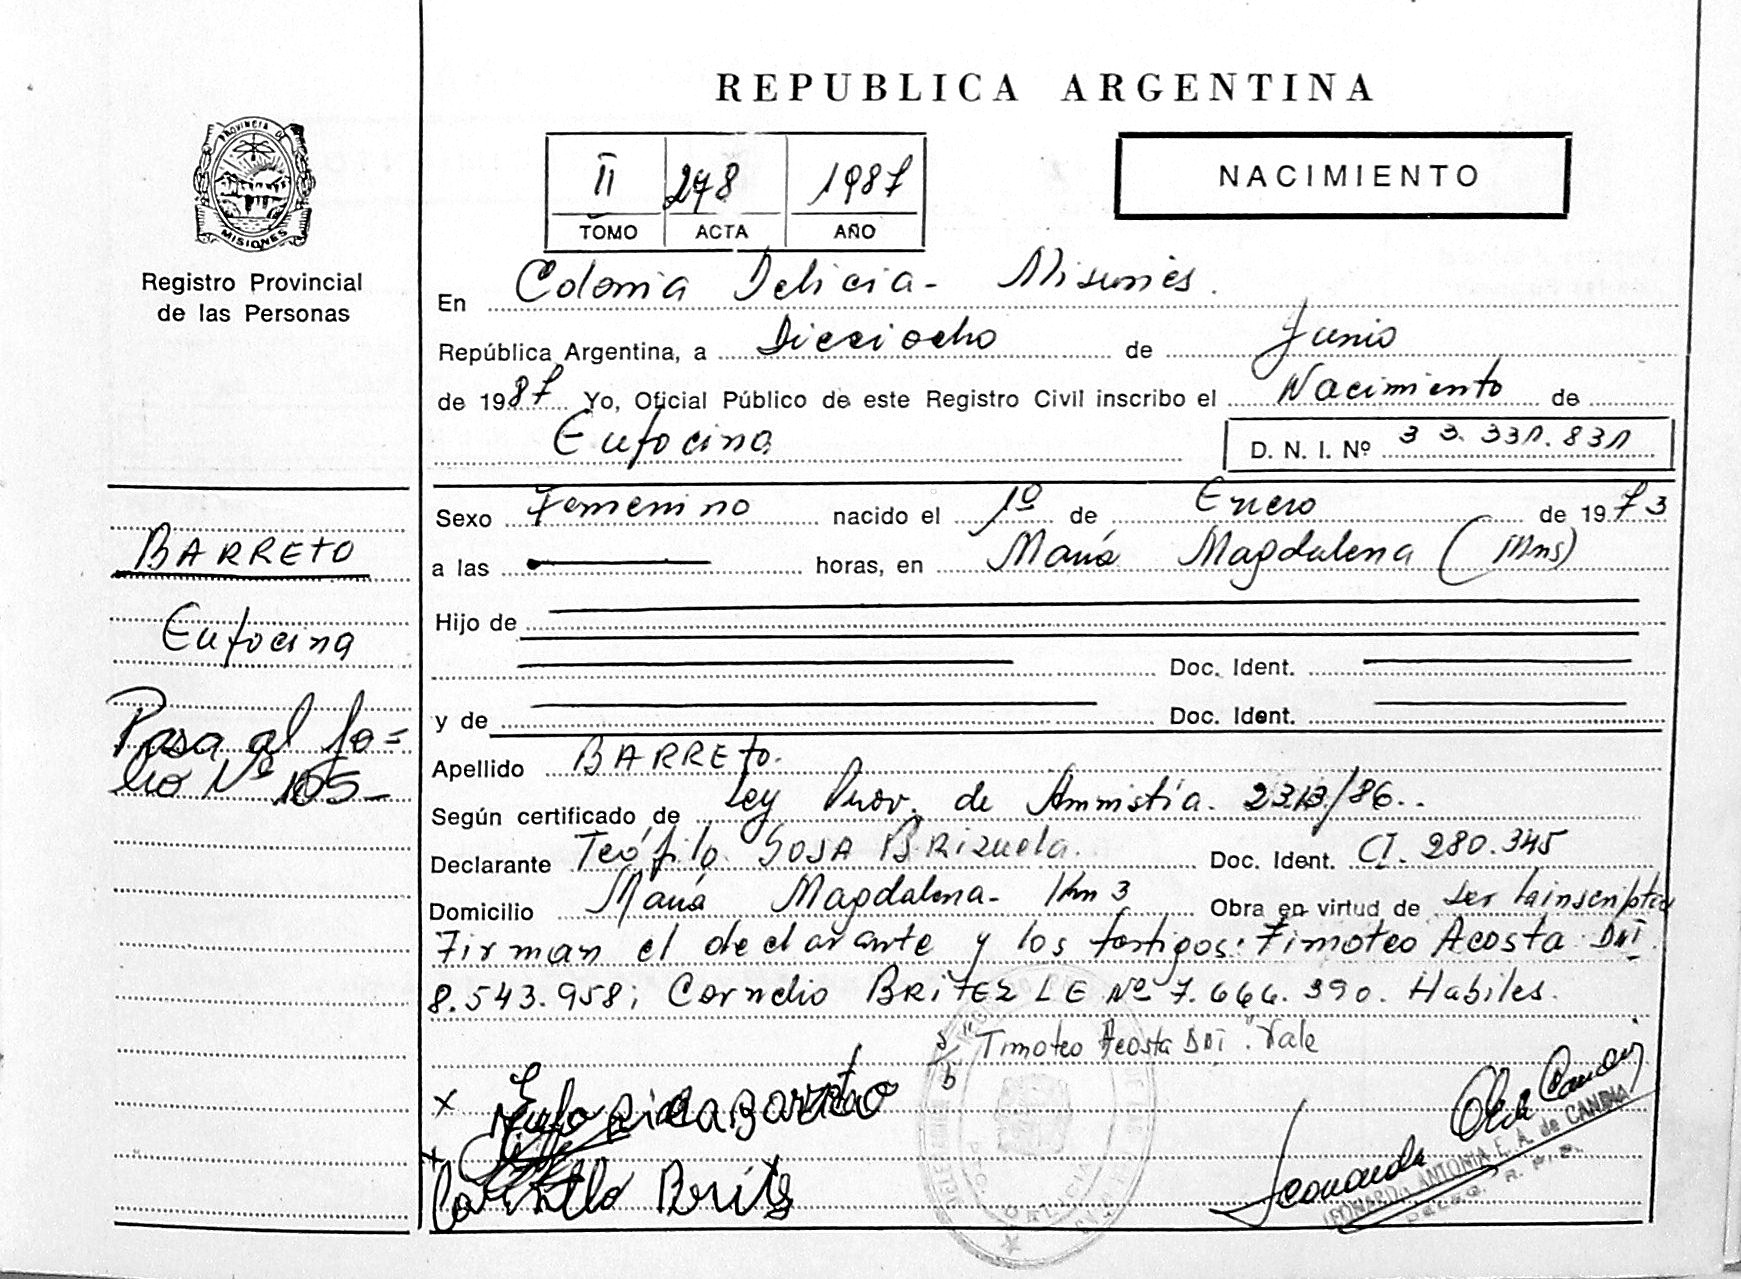 REPUBLICA ARGENTINA
PROVINCIA DE
MISIONES
Registro Provincial
de las Personas
II 278 1987
TOMO ACTA AÑO
NACIMIENTO
En Colonia Delicia - Misiones.
República Argentina, a Dieciocho de Junio
de 1987 Yo, Oficial Público de este Registro Civil inscribo el Nacimiento de
Eufocina
D. N. I. Nº 33.331.831
BARRETO
Eufocina
Pasa al fo=
lio Nº 105-
Sexo Femenino nacido el 1º de Enero de 1973
a las horas, en María Magdalena (Mns)
Hijo de
Doc. Ident.
y de Doc. Ident.
Apellido BARRETO.
Según certificado de Ley Prov. de Amnistía. 2313/86..
Declarante Teófilo SOSA BRizuela. Doc. Ident. CI. 280.345
Domicilio María Magdalena - Km 3 Obra en virtud de ser la inscripta
Firman el declarante y los testigos: Timoteo Acosta DNI
8.543.958; Cornelio BRITEZ LE Nº 7.666.390. Habiles.
s/b Timoteo Acosta DNI. "Vale
x Eufocina Barreto
x
Britez
Leonarda de Candia
LEONARDA ANTONIA F. A. de CANDIA
DELEG. R. P. P.